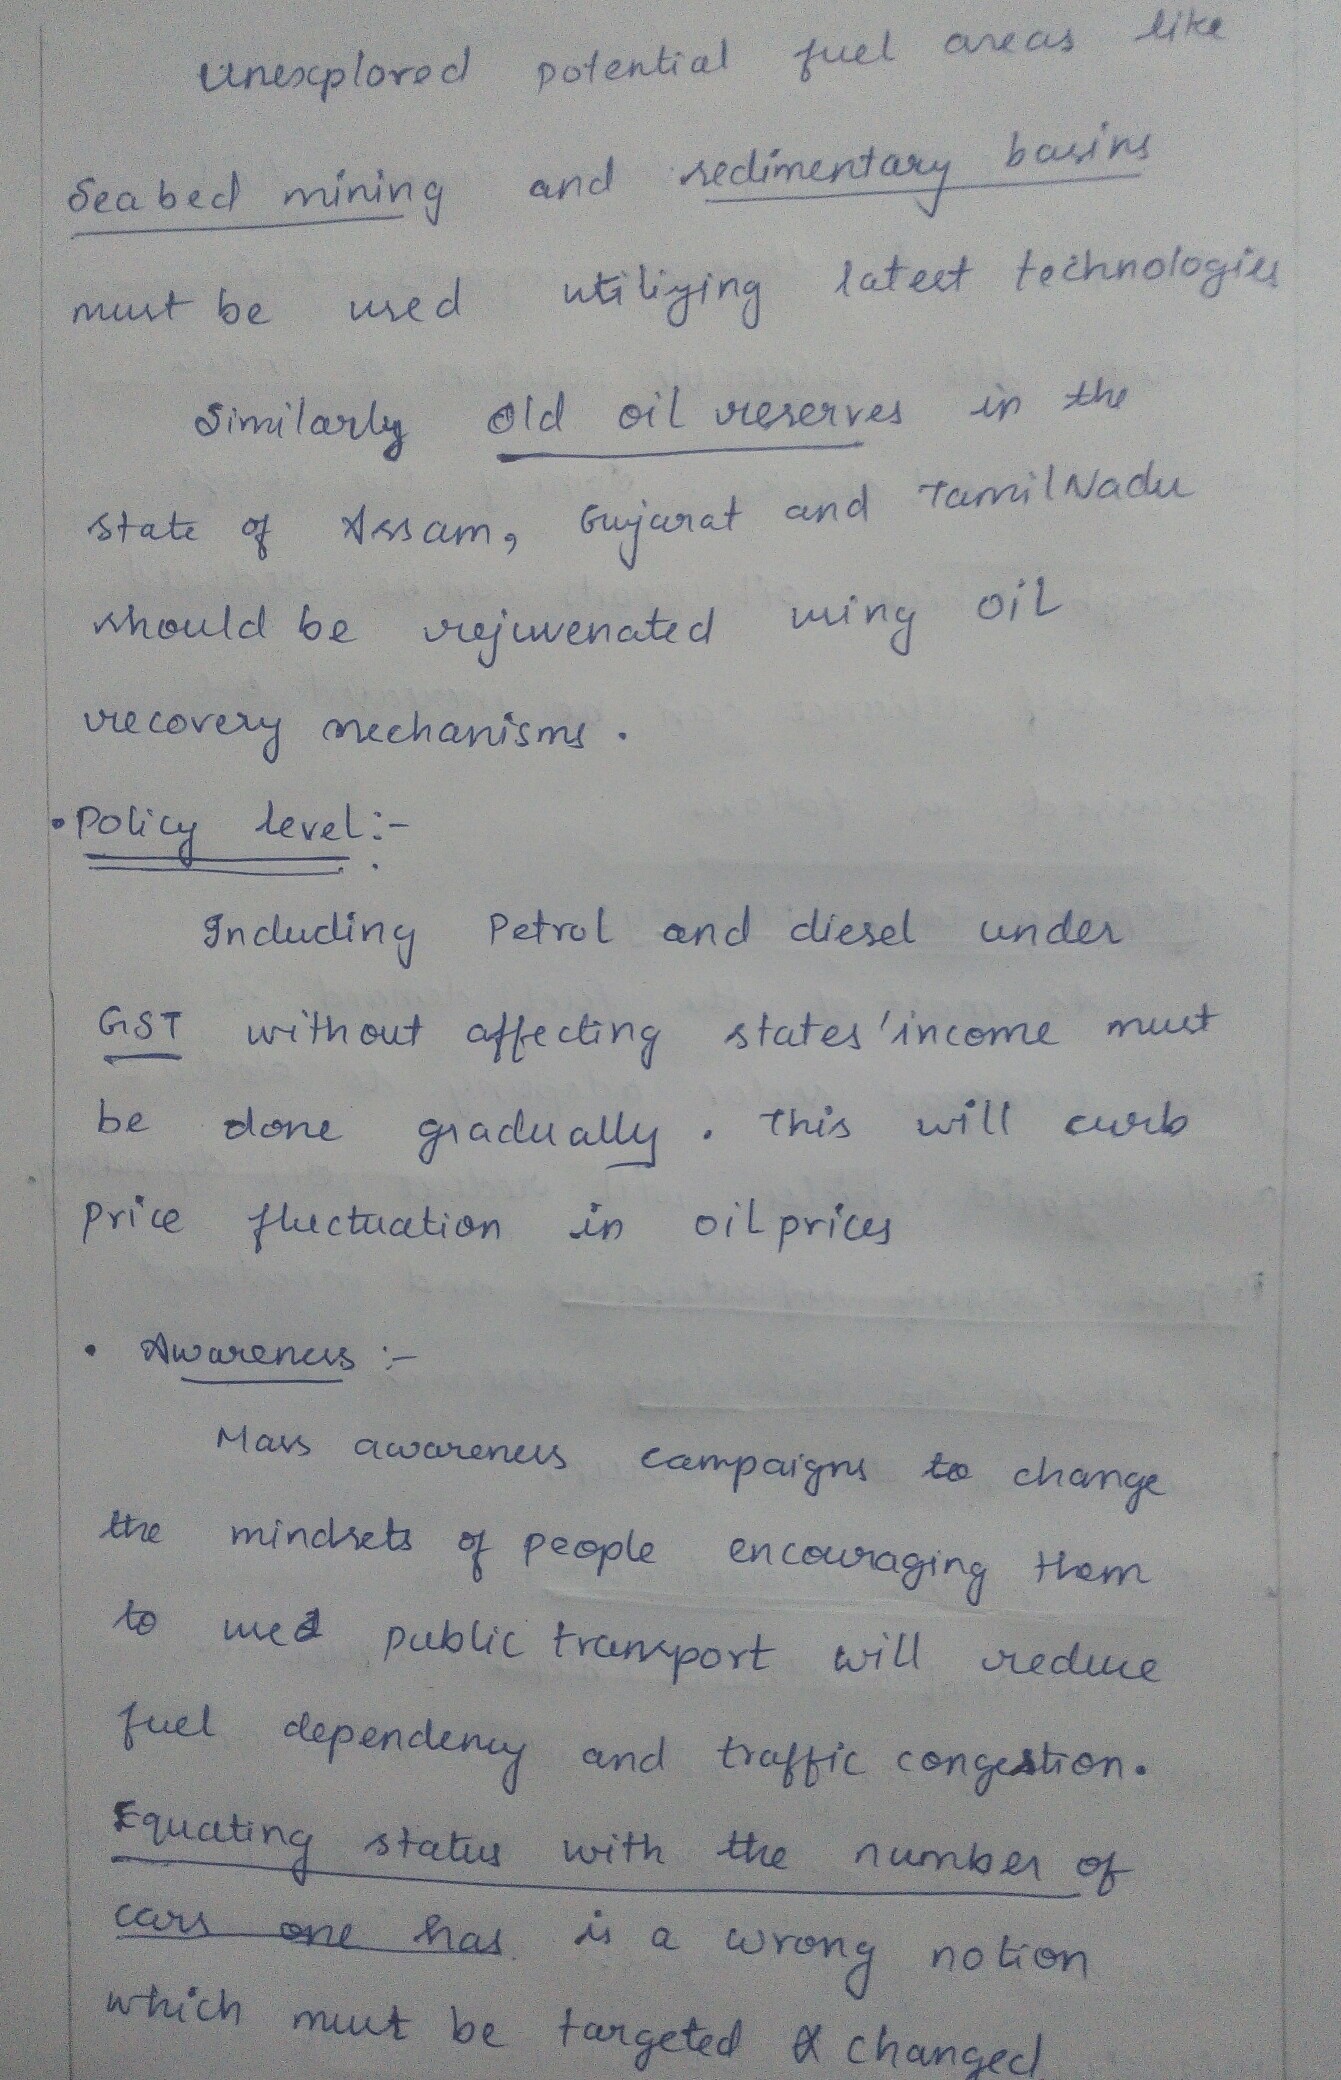 Unexplored potential fuel areas like
Seabed mining and sedimentary basins
must be used utilizing latest technologies
Similarly old oil reserves in the
state of Assam, Gujarat and TamilNadu
should be rejuvenated using oil
recovery mechanisms.
• Policy level:-
Including Petrol and diesel under
GST without affecting states' income must
be done gradually. This will curb
price fluctuation in oil prices
• Awareness :-
Mass awareness campaigns to change
the mindsets of people encouraging them
to use public transport will reduce
fuel dependency and traffic congestion.
Equating status with the number of
cars one has is a wrong notion
which must be targeted & changed